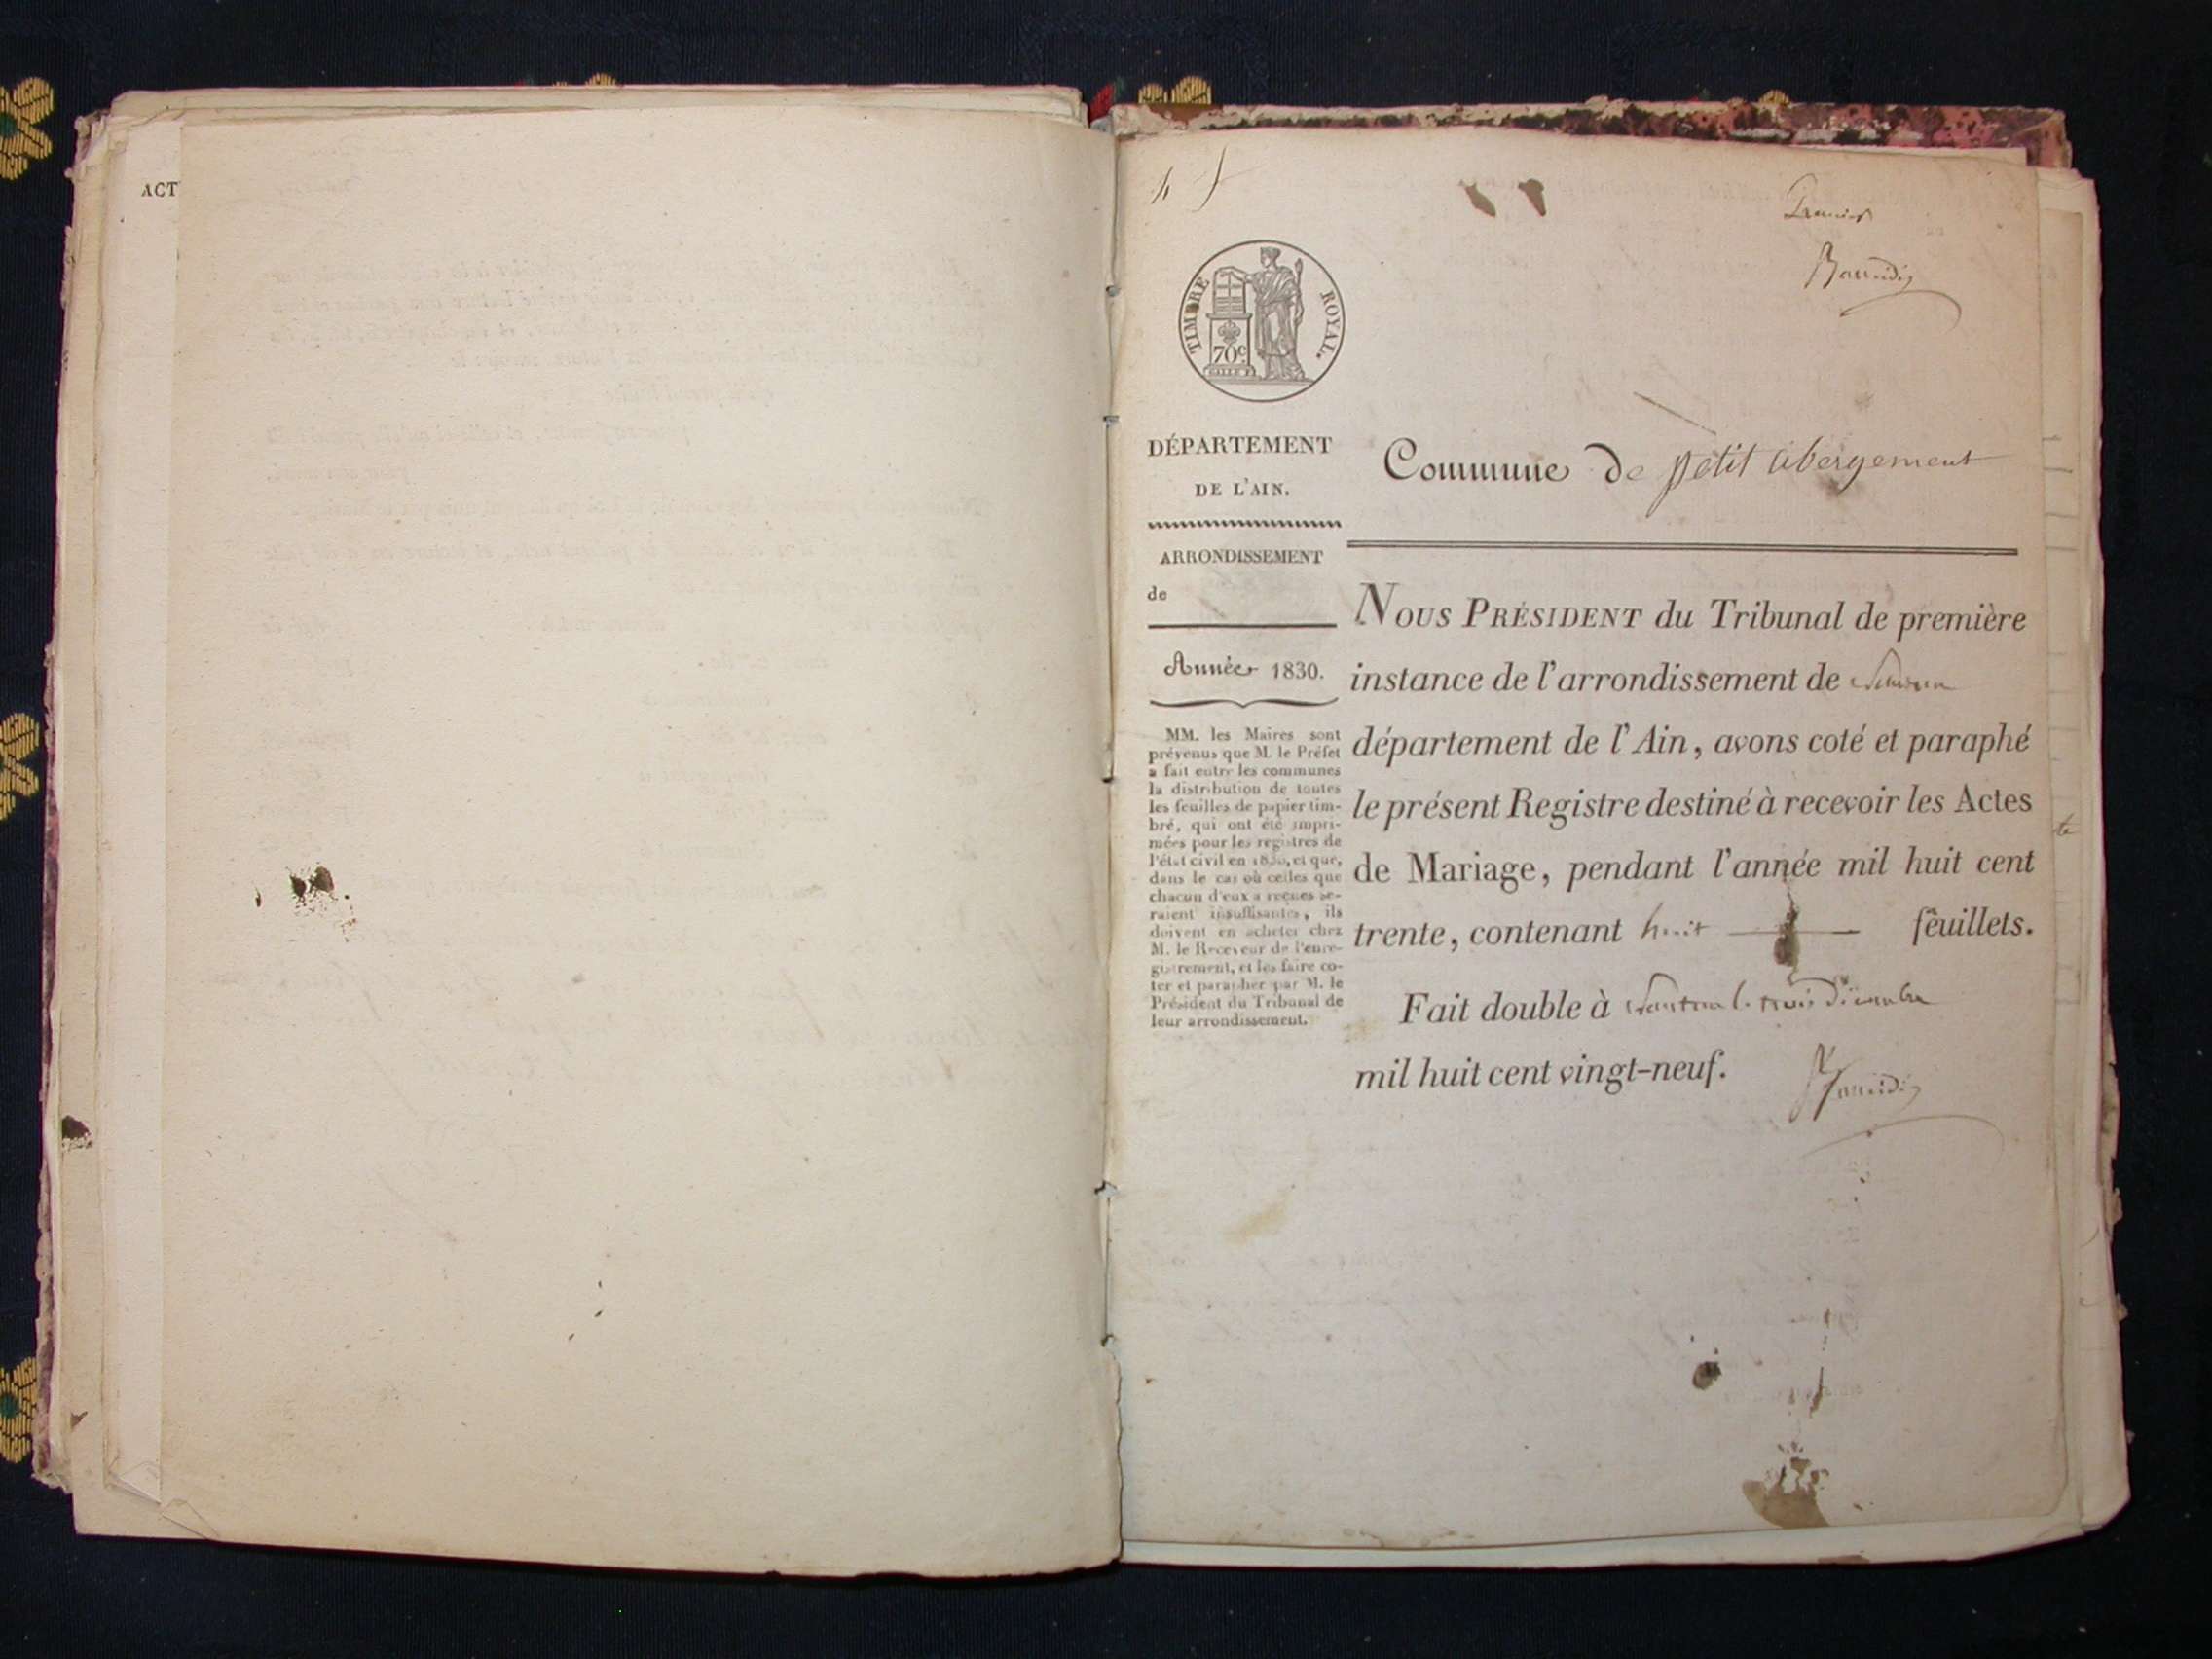 ACT
Premier
TIMBRE ROYAL.
70c.
DÉPARTEMENT
DE L'AIN.
Commune de petit abergement
ARRONDISSEMENT
de
Année 1830.
MM. les Maires sont
prévenus que M. le Préfet
a fait entre les communes
la distribution de toutes
les feuilles de papier tim-
bré, qui ont été impri-
mées pour les registres de
l'état civil en 1830, et que,
dans le cas où celles que
chacun d'eux a reçues se-
raient insuffisantes, ils
doivent en acheter chez
M. le Receveur de l'enre-
gistrement, et les faire co-
ter et parapher par M. le
Président du Tribunal de
leur arrondissement.
NOUS PRÉSIDENT du Tribunal de première
instance de l'arrondissement de Nantua
département de l'Ain, avons coté et paraphé
le présent Registre destiné à recevoir les Actes
de Mariage, pendant l'année mil huit cent
trente, contenant huit feuillets.
Fait double à Nantua le trois Décembre
mil huit cent vingt-neuf.